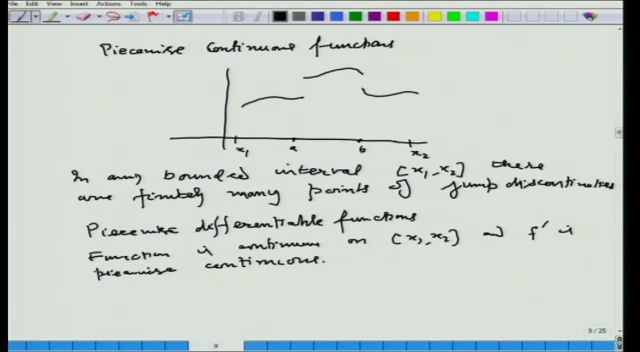 Edit View Insert Actions Tools Help
Piecewise Continuous functions
x₁ a b x₂
In any bounded interval [x₁, x₂] there
are finitely many points of jump discontinuities
Piecewise differentiable functions
Function is continuous on [x₁, x₂] and f' is
piecewise continuous.
9 / 25
9